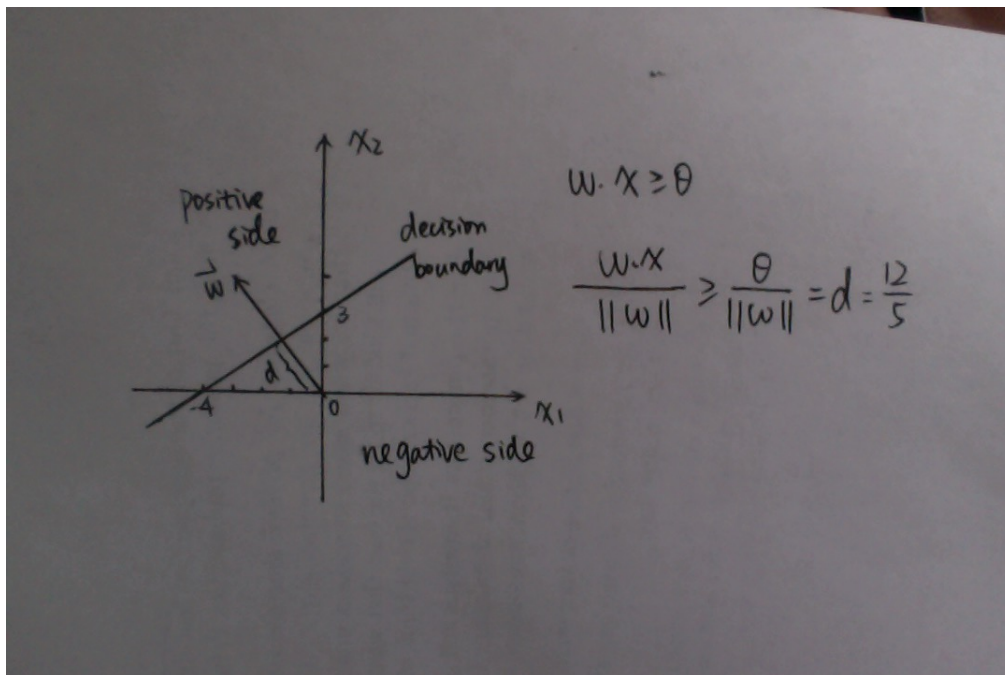 x₂
positive
side
decision
boundary
w⃗
3
d
-4
0
x₁
negative side
w · x ≥ θ
w·x / ||w|| ≥ θ / ||w|| = d = 12/5